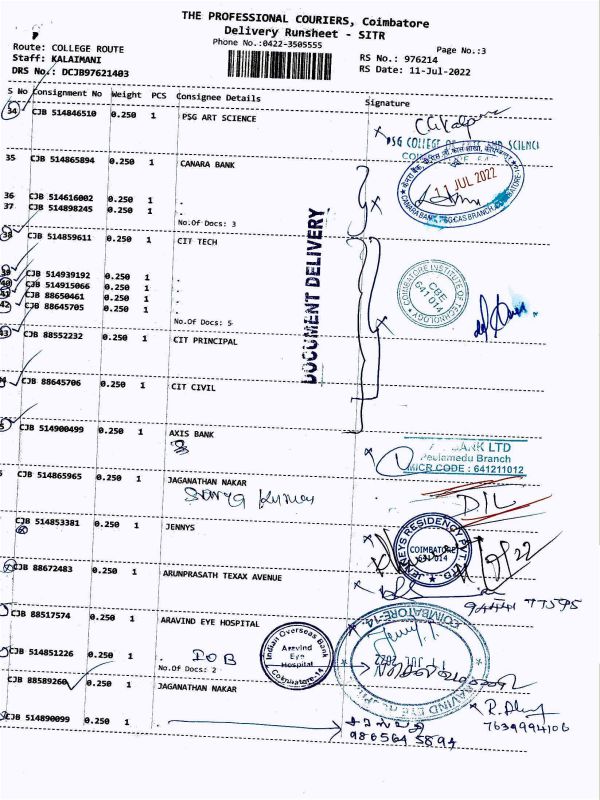 THE PROFESSIONAL COURIERS, Coimbatore
Delivery Runsheet - SITR
Phone No.:0422-3505555
Page No.:3
Route: COLLEGE ROUTE
Staff: KALAIMANI
RS No.: 976214
DRS No.: DCJB97621403
RS Date: 11-Jul-2022
S No Consignment No Weight PCS Consignee Details Signature
34 CJB 514846510 0.250 1 PSG ART SCIENCE
35 CJB 514865894 0.250 1 CANARA BANK
11 JUL 2022
36 CJB 514616002 0.250 1 .
37 CJB 514898245 0.250 1 .
No.Of Docs: 3
38 CJB 514859611 0.250 1 CIT TECH
DOCUMENT DELIVERY
COIMBATORE INSTITUTE OF TECHNOLOGY
CBE
641 014
39 CJB 514939192 0.250 1 .
40 CJB 514915066 0.250 1 .
41 CJB 88650461 0.250 1 .
42 CJB 88645705 0.250 1 .
No.Of Docs: 5
43 CJB 88552232 0.250 1 CIT PRINCIPAL
CJB 88645706 0.250 1 CIT CIVIL
CJB 514900499 0.250 1 AXIS BANK
BANK LTD
Peelamedu Branch
MICR CODE : 641211012
CJB 514865965 0.250 1 JAGANATHAN NAKAR
DIL
CJB 514853381 0.250 1 JENNYS
JENNEYS RESIDENCY PVT LTD
COIMBATORE
641 014
CJB 88672483 0.250 1 ARUNPRASATH TEXAX AVENUE
94441 77595
CJB 88517574 0.250 1 ARAVIND EYE HOSPITAL
CJB 514851226 0.250 1 .
IOB
No.Of Docs: 2
Indian Overseas Bank
Aravind
Eye
Hospital
Coimbatore-14
COIMBATORE-14
ARAVIND EYE HOSPITAL
CJB 88589260 0.250 1 JAGANATHAN NAKAR
7639994106
CJB 514890099 0.250 1 .
9865645894